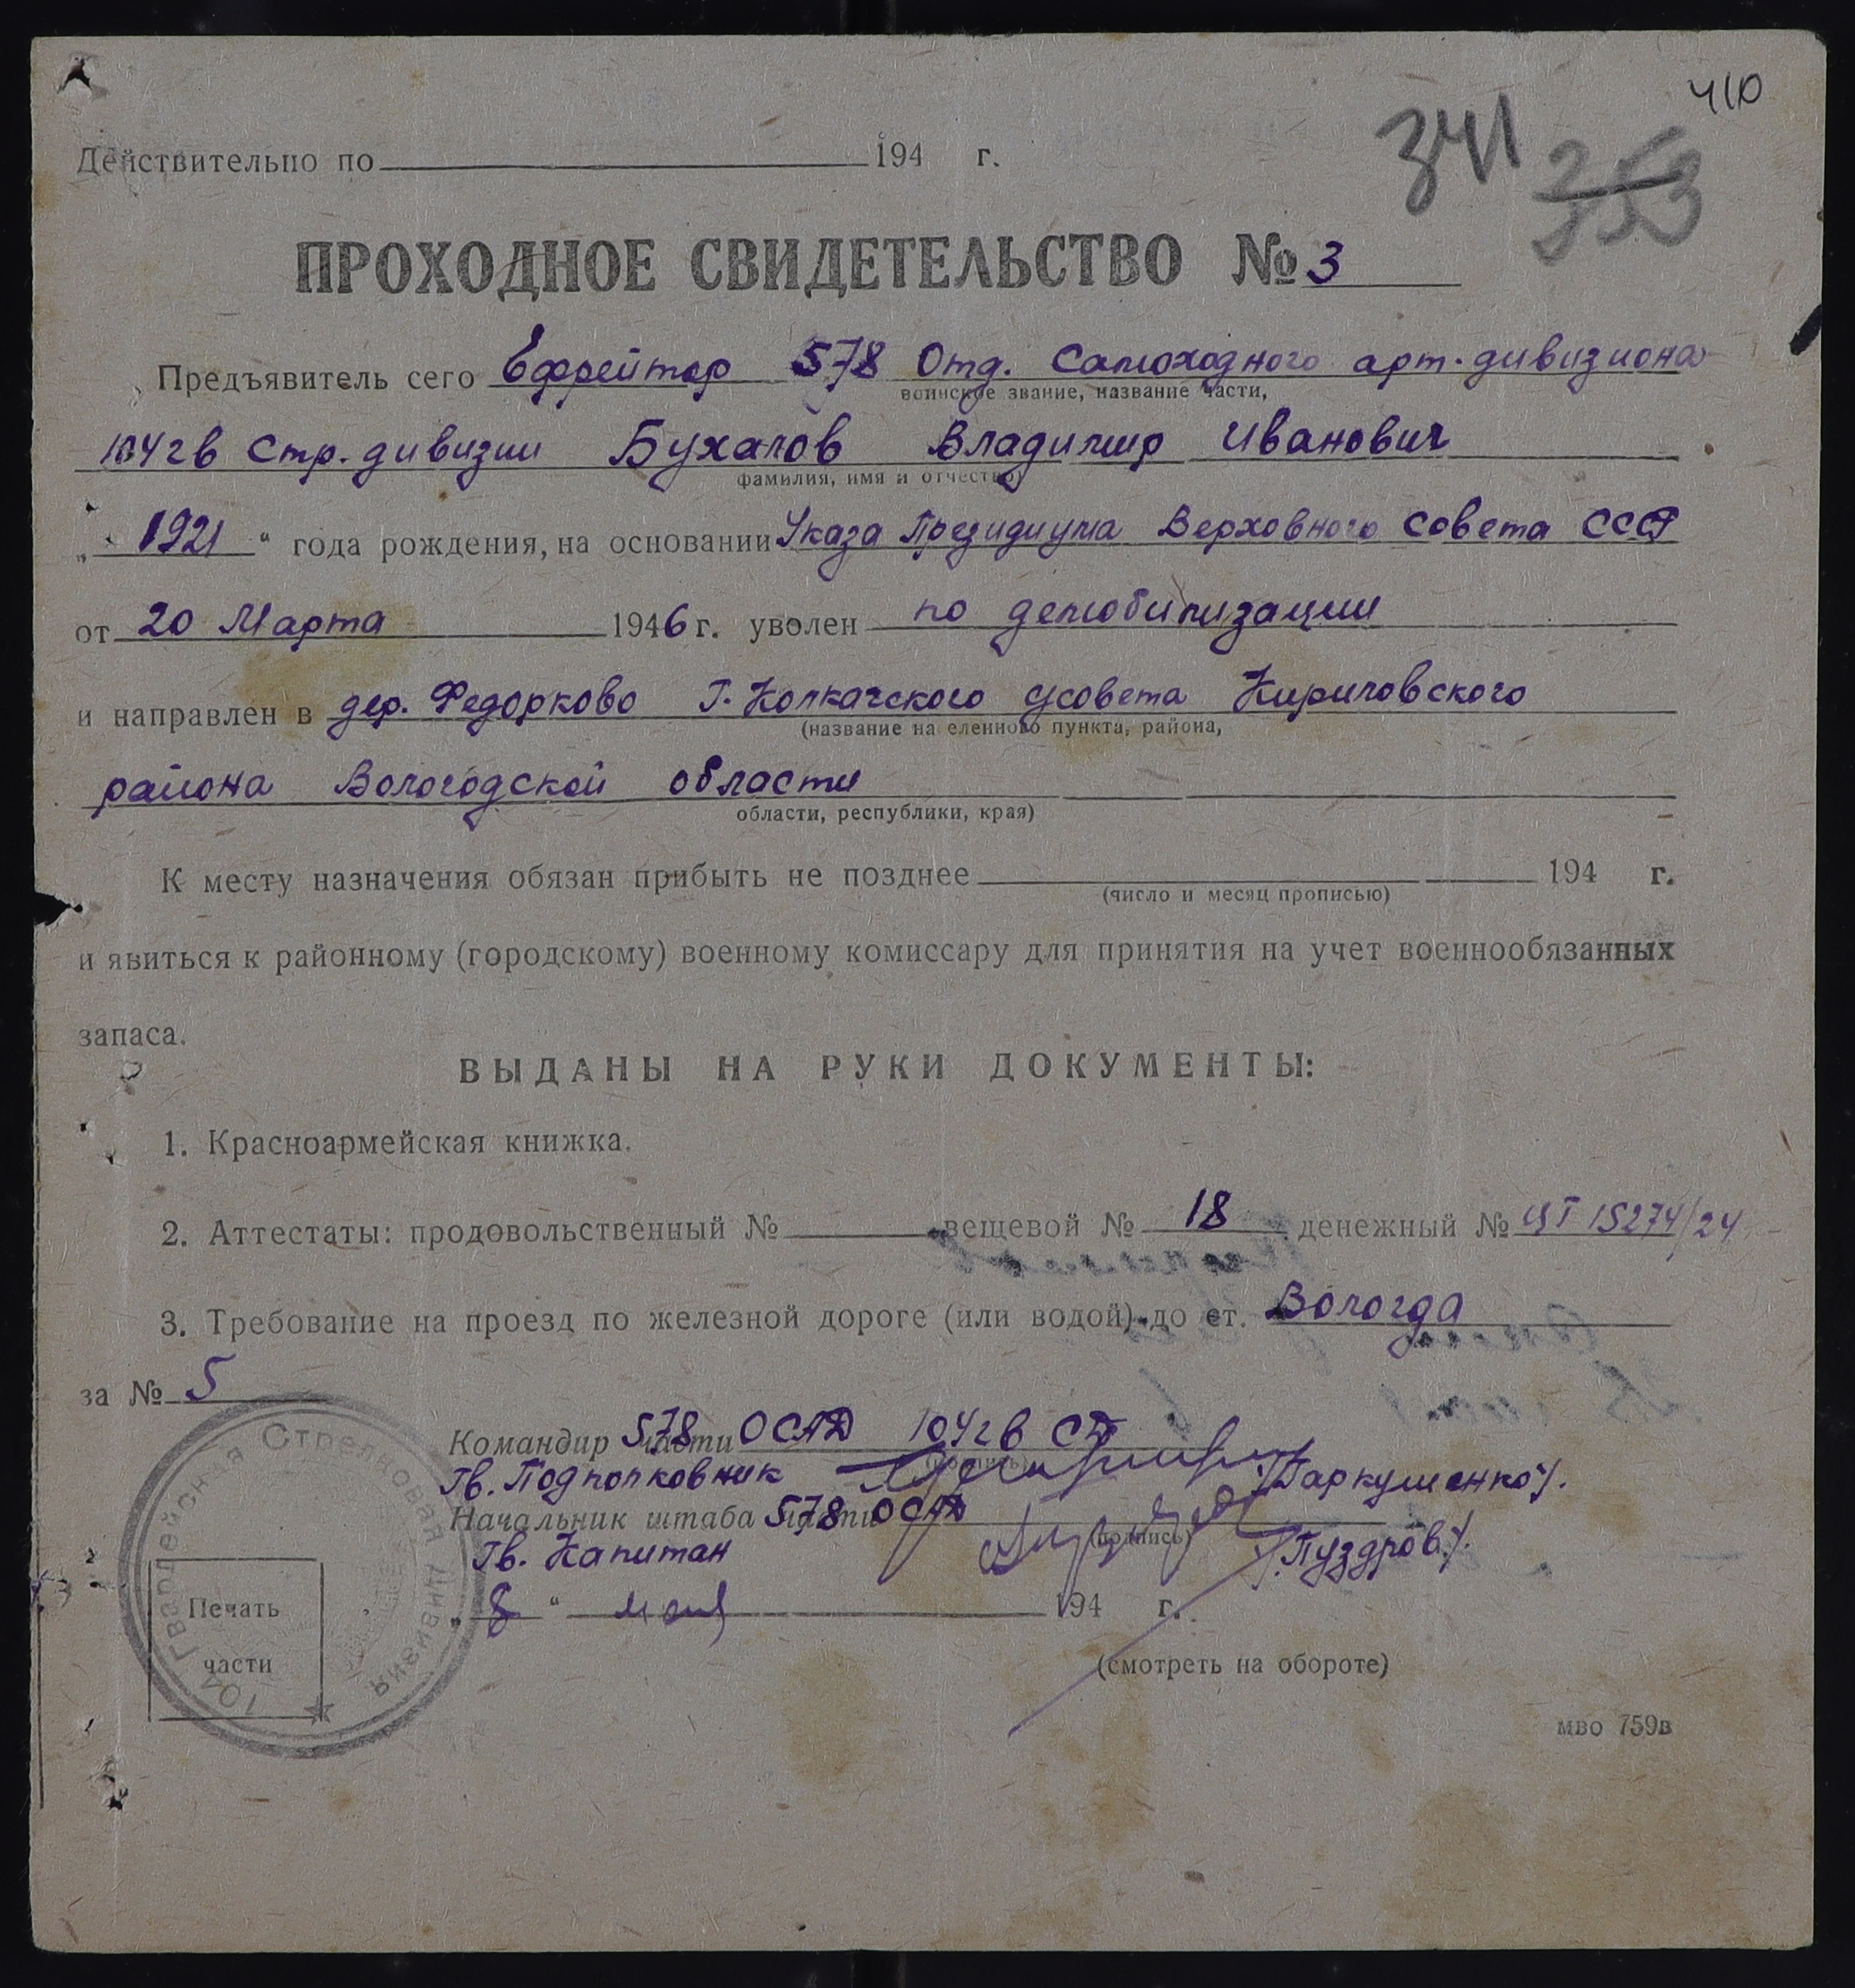 410
341 353
Действительно по 194 г.
ПРОХОДНОЕ СВИДЕТЕЛЬСТВО № 3
Предъявитель сего Ефрейтор 578 Отд. Самоходного арт. дивизиона
воинское звание, название части,
104 гв Стр. дивизии Бухалов Владимир Иванович
фамилия, имя и отчество)
„ 1921 “ года рождения, на основании Указа Президиума Верховного Совета СССР
от 20 Марта 1946 г. уволен по демобилизации
и направлен в дер. Федорково Г. Колкачского с/совета Кирилловского
(название на еленного пункта, района,
района Вологодской области
области, республики, края)
К месту назначения обязан прибыть не позднее 194 г.
(число и месяц прописью)
и явиться к районному (городскому) военному комиссару для принятия на учет военнообязанных
запаса.
ВЫДАНЫ НА РУКИ ДОКУМЕНТЫ:
1. Красноармейская книжка.
2. Аттестаты: продовольственный № вещевой № 18 денежный № ЦТ 15274/24
3. Требование на проезд по железной дороге (или водой) до ст. Вологда
за № 5
Командир части 578 ОСАД 104 гв СД
(подпись)
Гв. Подполковник /Гаркушенко/.
Начальник штаба части 578 ОСАД
(подпись)
Гв. Капитан /Пуздров/.
„ 8 “ мая 194 г.
Печать
части
104 Гвардейская Стрелковая Дивизия
(смотреть на обороте)
мво 759в